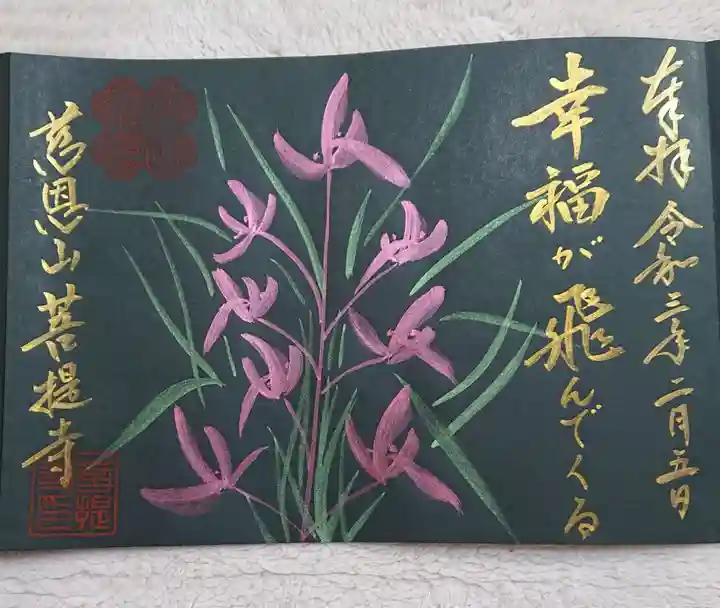 奉拝 令和三年二月五日
幸福が飛んでくる
慈恩山 菩提寺